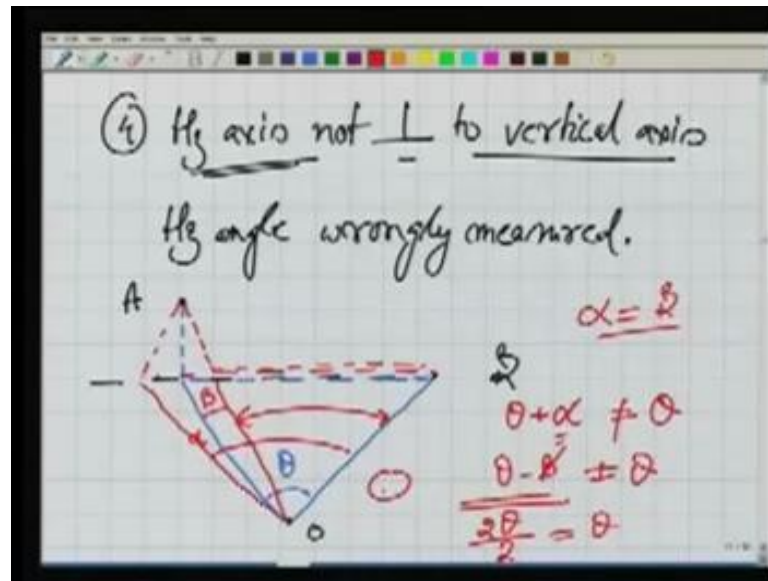 ④ Hz axis not ⊥ to vertical axis
Hz angle wrongly measured.
A
α = β
β
θ + α ≠ θ
α
θ - β ≠ θ
θ
2θ/2 = θ
O